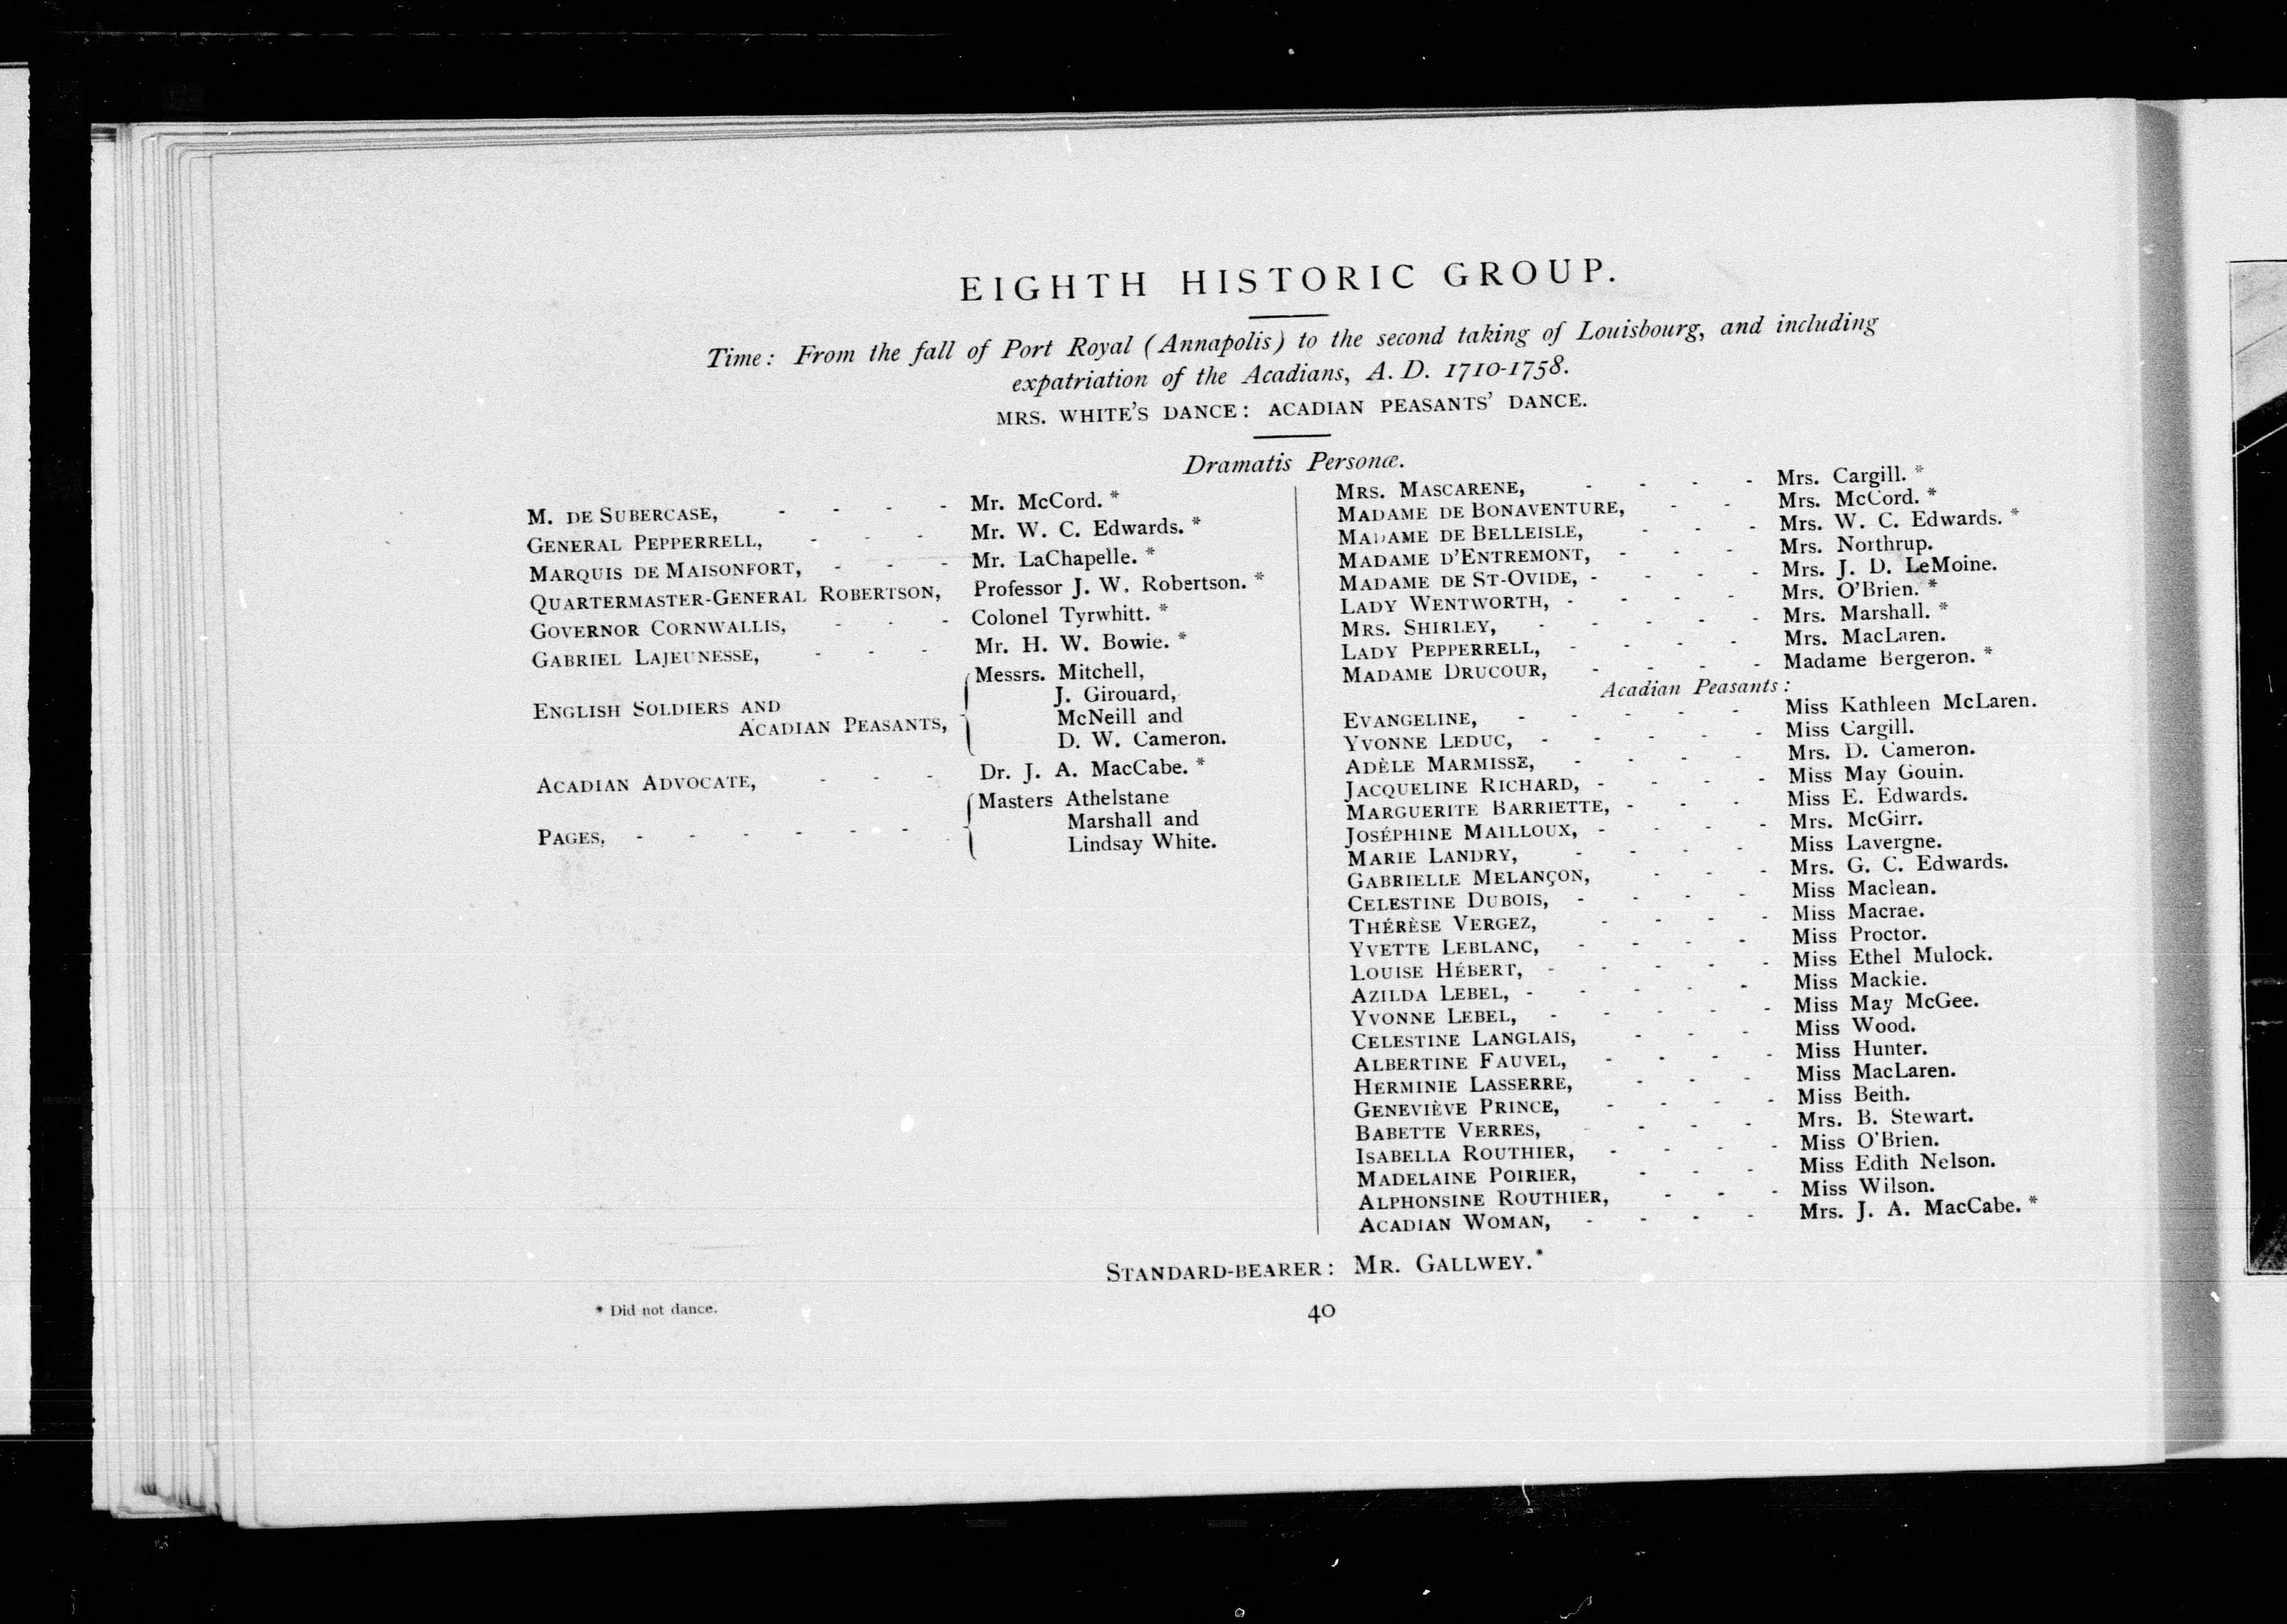 EIGHTH HISTORIC GROUP.
Time: From the fall of Port Royal (Annapolis) to the second taking of Louisbourg, and including
expatriation of the Acadians, A. D. 1710-1758.
MRS. WHITE'S DANCE: ACADIAN PEASANTS' DANCE.
Dramatis Personæ.
M. DE SUBERCASE, - - - - Mr. McCord. *
GENERAL PEPPERRELL, - - - Mr. W. C. Edwards. *
MARQUIS DE MAISONFORT, - - - Mr. LaChapelle. *
QUARTERMASTER-GENERAL ROBERTSON, Professor J. W. Robertson. *
GOVERNOR CORNWALLIS, - - - Colonel Tyrwhitt. *
GABRIEL LAJEUNESSE, - - - Mr. H. W. Bowie. *
Messrs. Mitchell,
J. Girouard,
ENGLISH SOLDIERS AND
ACADIAN PEASANTS, McNeill and
D. W. Cameron.
ACADIAN ADVOCATE, - - - Dr. J. A. MacCabe. *
Masters Athelstane
Marshall and
PAGES, - - - - - - - Lindsay White.
MRS. MASCARENE, - - - - Mrs. Cargill. *
MADAME DE BONAVENTURE, - - Mrs. McCord. *
MADAME DE BELLEISLE, - - - Mrs. W. C. Edwards. *
MADAME D'ENTREMONT, - - - Mrs. Northrup.
MADAME DE ST-OVIDE, - - - - Mrs. J. D. LeMoine.
LADY WENTWORTH, - - - - Mrs. O'Brien. *
MRS. SHIRLEY, - - - - - Mrs. Marshall. *
LADY PEPPERRELL, - - - - Mrs. MacLaren.
MADAME DRUCOUR, - - - - Madame Bergeron. *
Acadian Peasants:
EVANGELINE, - - - - - Miss Kathleen McLaren.
YVONNE LEDUC, - - - - - Miss Cargill.
ADÈLE MARMISSE, - - - - Mrs. D. Cameron.
JACQUELINE RICHARD, - - - - Miss May Gouin.
MARGUERITE BARRIETTE, - - - Miss E. Edwards.
JOSÉPHINE MAILLOUX, - - - - Mrs. McGirr.
MARIE LANDRY, - - - - Miss Lavergne.
GABRIELLE MELANÇON, - - - Mrs. G. C. Edwards.
CELESTINE DUBOIS, - - - - Miss Maclean.
THÉRÈSE VERGEZ, - - - - Miss Macrae.
YVETTE LEBLANC, - - - - Miss Proctor.
LOUISE HÉBERT, - - - - - Miss Ethel Mulock.
AZILDA LEBEL, - - - - - Miss Mackie.
YVONNE LEBEL, - - - - - Miss May McGee.
CELESTINE LANGLAIS, - - - Miss Wood.
ALBERTINE FAUVEL, - - - - Miss Hunter.
HERMINIE LASSERRE, - - - Miss MacLaren.
GENEVIÈVE PRINCE, - - - - Miss Beith.
BABETTE VERRES, - - - - Mrs. B. Stewart.
ISABELLA ROUTHIER, - - - - Miss O'Brien.
MADELAINE POIRIER, - - - Miss Edith Nelson.
ALPHONSINE ROUTHIER, - - - Miss Wilson.
ACADIAN WOMAN, - - - - Mrs. J. A. MacCabe. *
STANDARD-BEARER: MR. GALLWEY. *
* Did not dance.
40